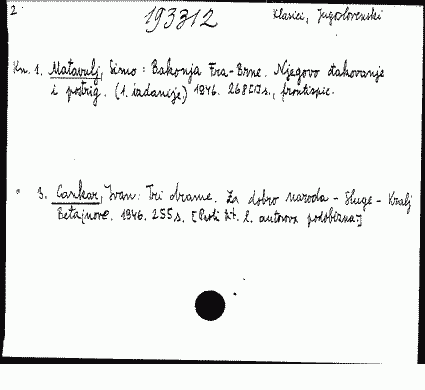 2
193312
Klasici, Jugoslovenski
Kn. 1. Matavulj, Simo: Bakonja Fra-Brne. Njegovo đakovanje
i postrig. (1. izdancije.) 1946. 268 [2] s., frontispic.
" 3. Cankar, Ivan: Tri drame. Za dobro naroda - Sluge - Kralj
Betajnove. 1946. 255 s. [Proti tit. l. autorova podobizna.]